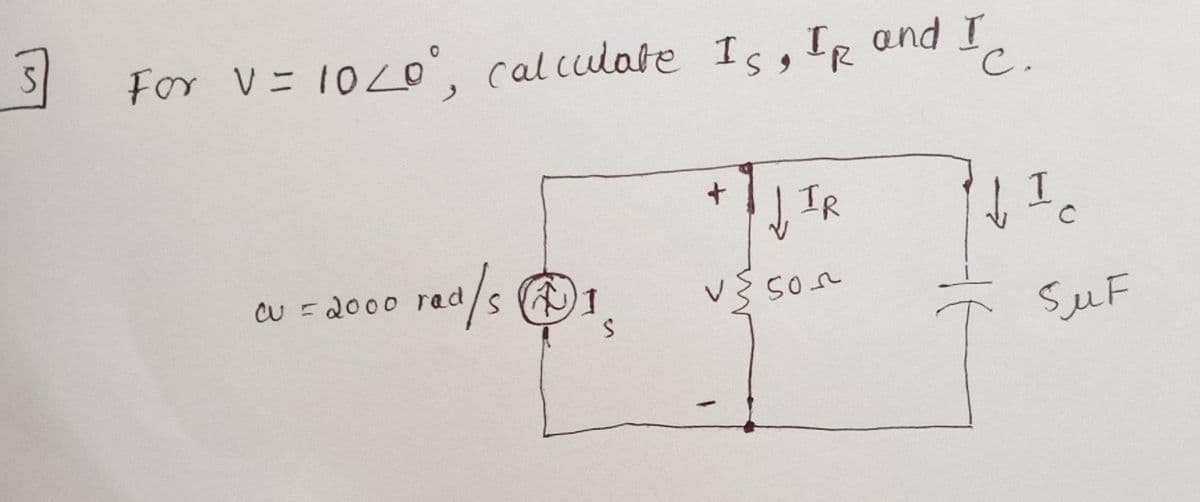 5 For V = 10∠0°, calculate Is, IR and Ic.
+ ↓ IR ↓ Ic
ω = 2000 rad/s Is V 50Ω 5μF
-